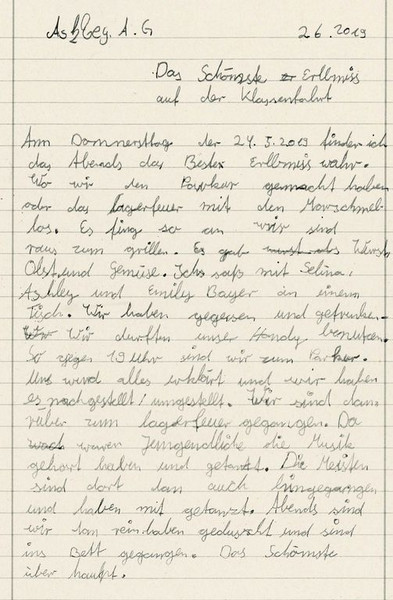 Ashley. A. G 2 6. 2019
Das Schönste Erllmiss
auf der Klassenfahrt
Am Donnersttag der 24. 5. 2019 finder ich
das Abends das Beste Erllmiss wahr.
Wo wir den Parkur gemacht haben
oder das lagerfeuer mit den Marschmel-
los. Es fing so an wir sind
raus zum grillen. Es gab Würst
Obst und Gemüse. Ich saß mit Selina,
Ashley und Emily Bayer an einem
Tisch. Wir haben gegessen und getrunken.
Wir durften unser Handy benutzen.
So gegen 19 Uhr sind wir zum Parkur.
Uns wurd alles erklärt und wir haben
es nachgestellt / umgestellt. Wir sind dan
rüber zum lagerfeuer gegangen. Da
waren Jungendliche die Musik
gehört haben und getanzt. Die Meisten
sind dort dan auch hingegangen
und haben mit getanzt. Abends sind
wir dan rein haben geduscht und sind
ins Bett gegangen. Das Schönste
über haupt.